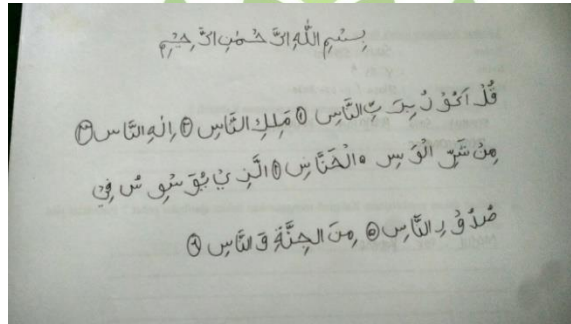 بِسْمِ اللّٰهِ الرَّحْمٰنِ الرَّحِيْمِ
قُلْ اَعُوْذُ بِرَبِّ النَّاسِ ① مَلِكِ النَّاسِ ② اِلٰهِ النَّاسِ ③
مِنْ شَرِّ الْوَسْوَاسِ الْخَنَّاسِ ④ الَّذِيْ يُوَسْوِسُ فِيْ
صُدُوْرِ النَّاسِ ⑤ مِنَ الْجِنَّةِ وَالنَّاسِ ⑥